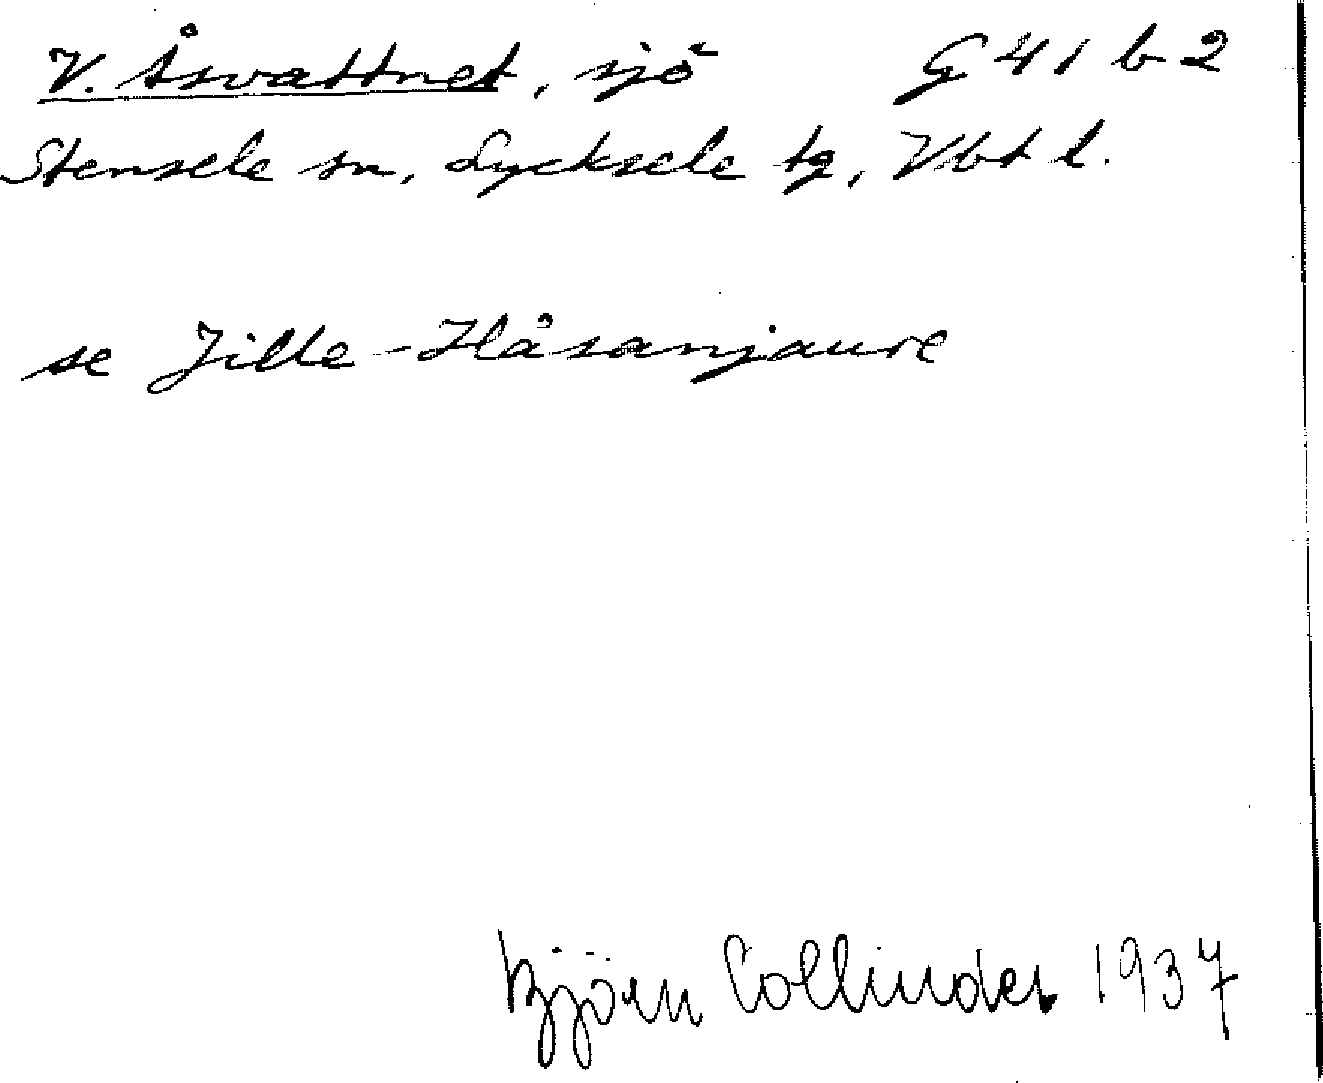 V. Åsvattnet, sjö G 41 b 2
Stensele sn, Lycksele tg, Vbt l.
se Jille-Håsanjaure
Björn Collinder 1937